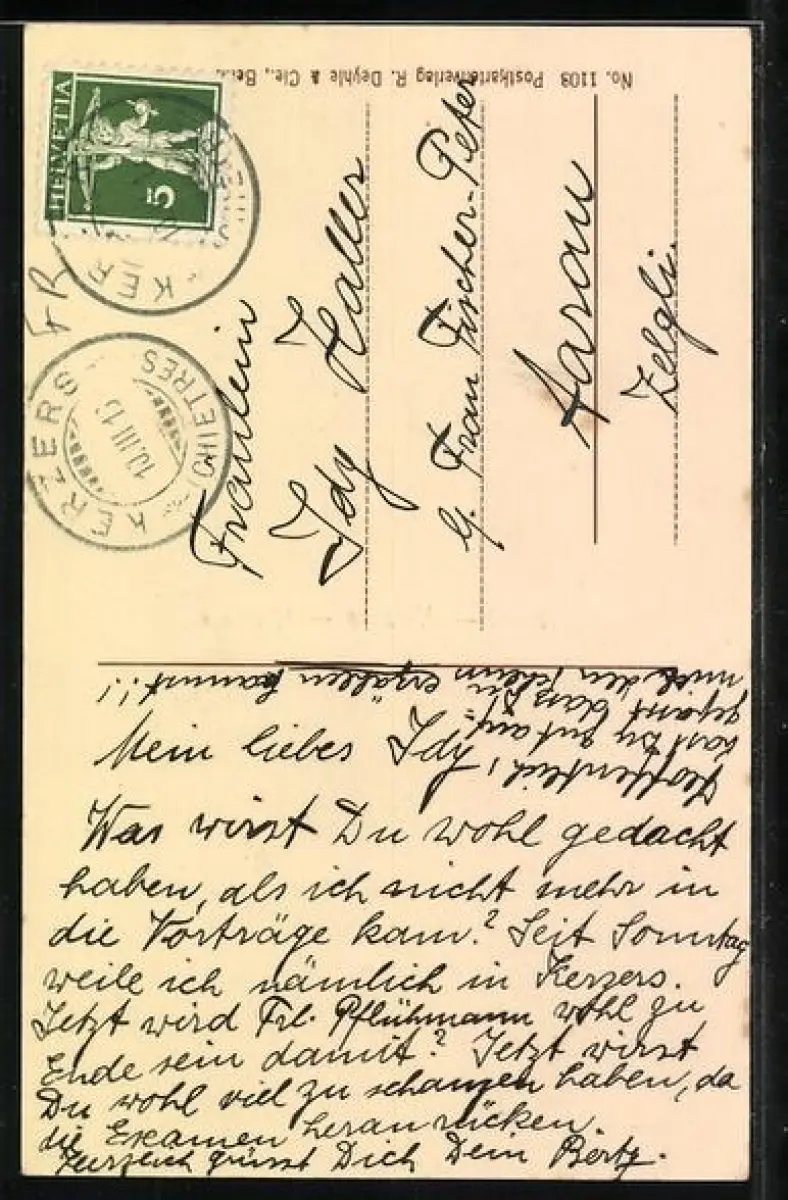 No. 1103 Postkartenverlag R. Deyhle & Cie., Bern
HELVETIA
5
KERZERS (CHIETRES)
10.III.15
KERZERS
Fräulein
Idy Haller
Frau Fischer-Peter
Aarau
Zelgli.
Mein liebes Idy,
Was wirst Du wohl gedacht
haben, als ich nicht mehr in
die Vorträge kam? Seit Sonntag
weile ich nämlich in Kerzers.
Jetzt wird Frl. Pflühmann wohl zu
Ende sein damit? Jetzt wirst
Du wohl viel zu schanzen haben, da
die Examen heranrücken.
Herzlich grüsst Dich Dein Berty.
Hoffentlich
hast Du gut auf-
gepasst dass Du
mir den erzählen kannst!!!